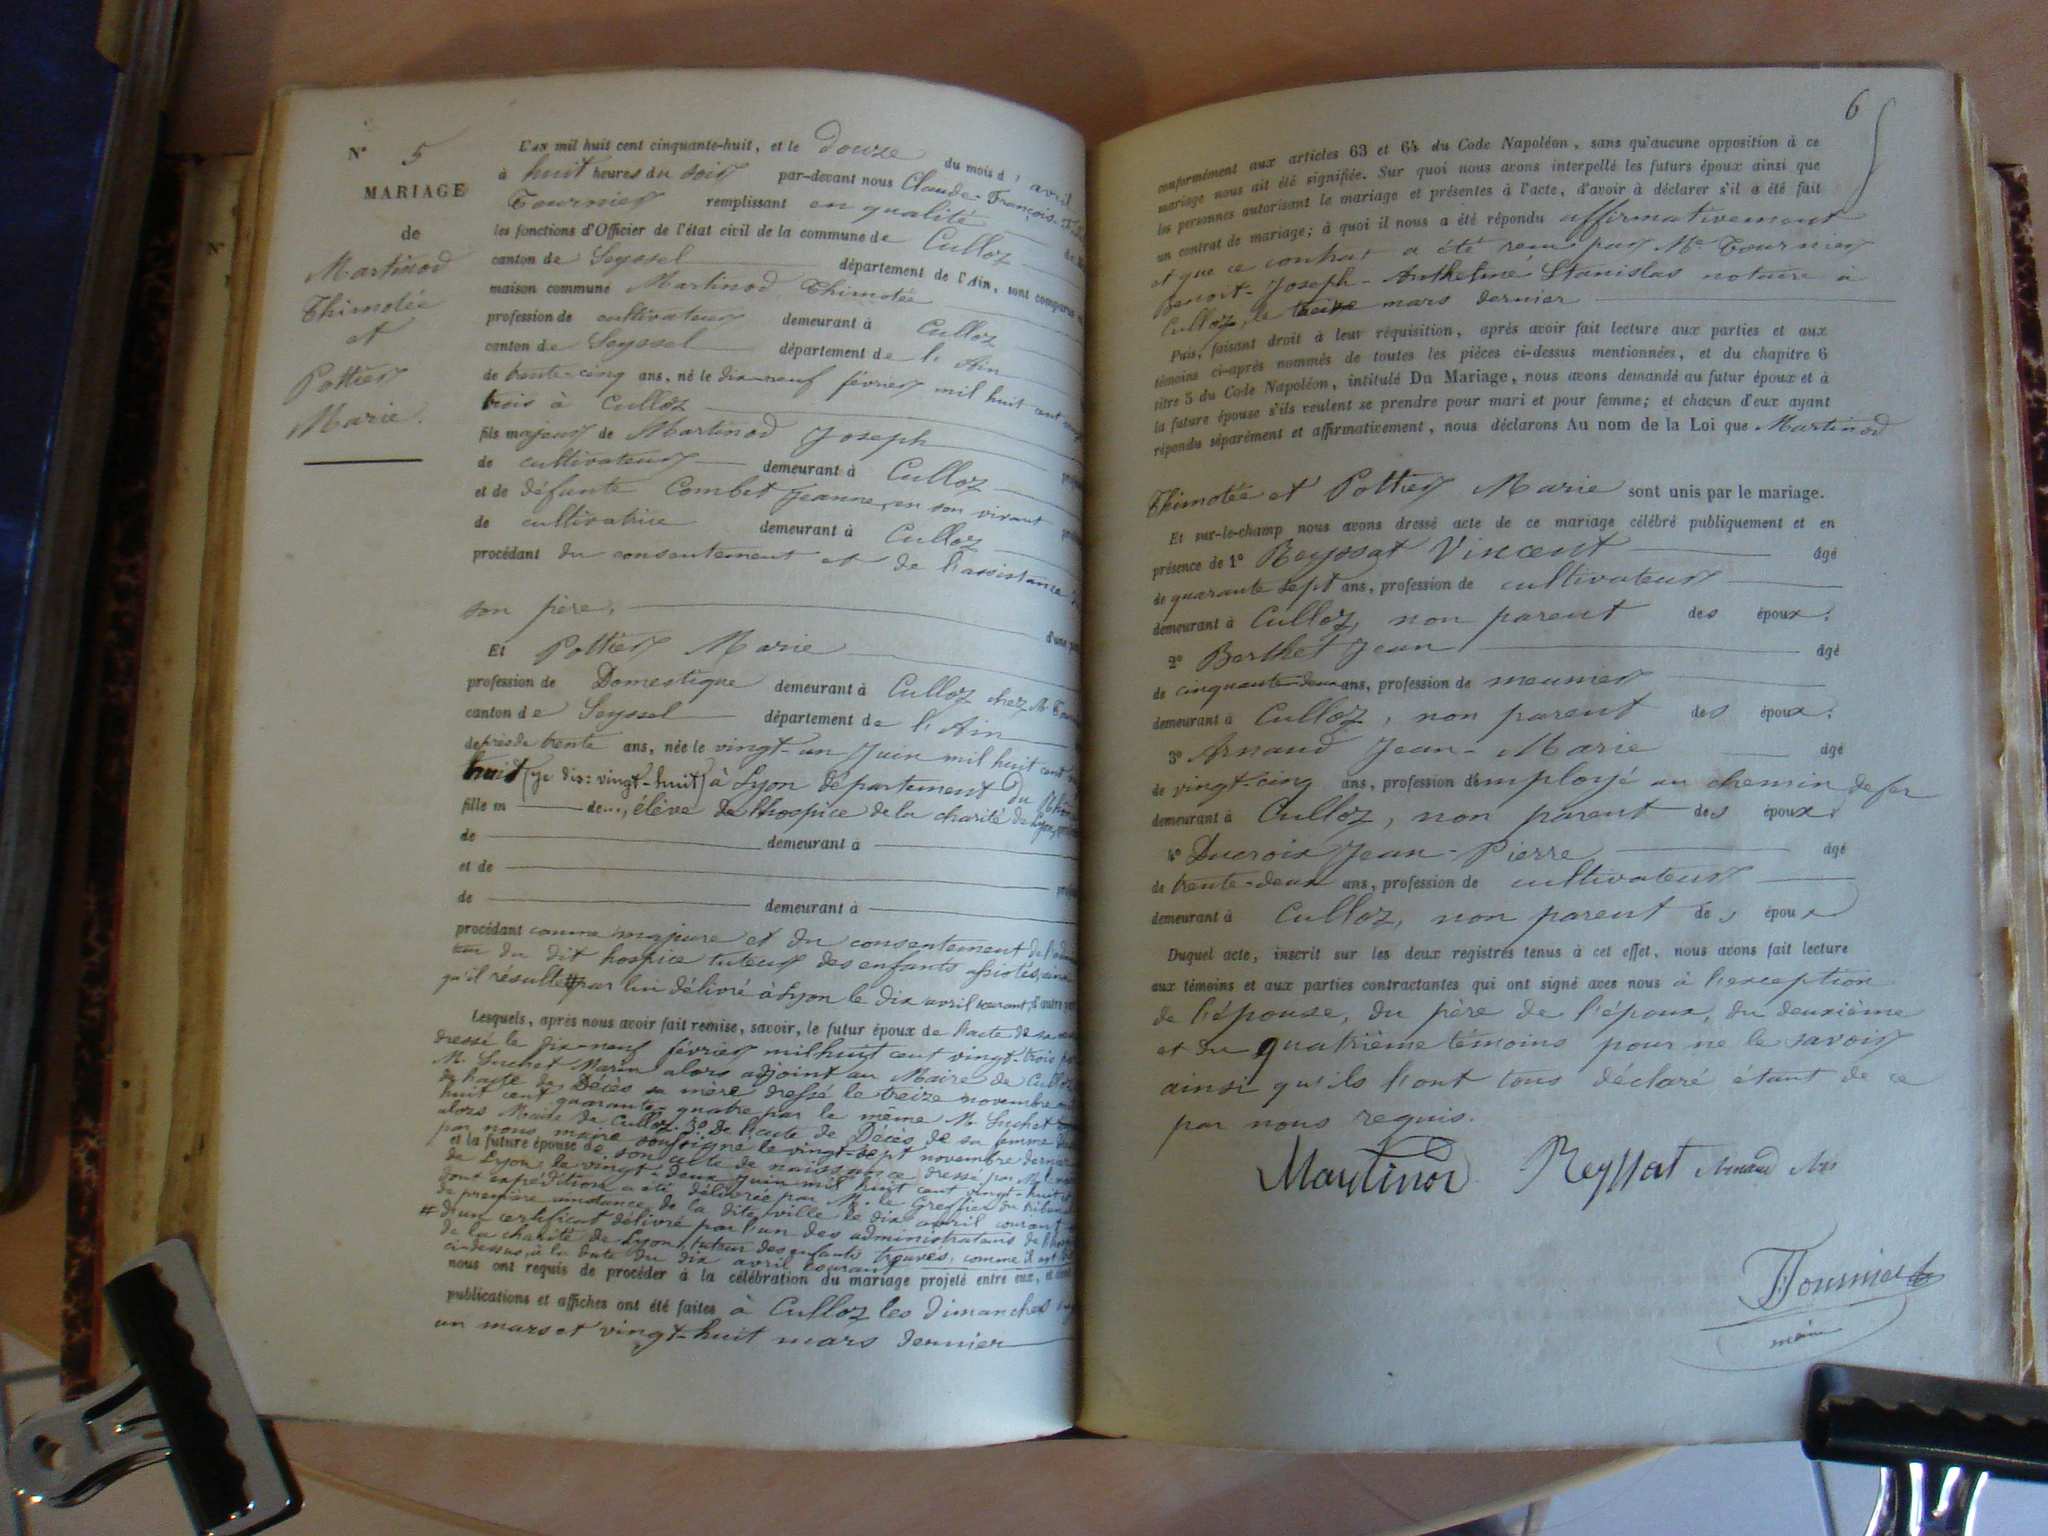 N° 5
MARIAGE
de
Martinod
Thimotée
et
Pottier
Marie.
L'an mil huit cent cinquante-huit, et le douze du mois d'avril
à huit heures du soir par-devant nous Claude-François
Tournier remplissant en qualité
les fonctions d'Officier de l'état civil de la commune de Culloz
canton de Seyssel département de l'Ain, sont comparus
maison commune Martinod Thimotée
profession de cultivateur demeurant à Culloz
canton de Seyssel département de l'Ain
de trente-cinq ans, né le dix-neuf février mil huit cent
trois à Culloz
fils majeur de Martinod Joseph
de cultivateur demeurant à Culloz
et de défunte Combet Jeanne, en son vivant
de cultivatrice demeurant à Culloz
procédant du consentement et de l'assistance
son père, d'une
Et Pottier Marie
profession de Domestique demeurant à Culloz chez M.
canton de Seyssel département de l'Ain
de près de trente ans, née le vingt-un Juin mil huit cent
huit (je dis: vingt-huit) à Lyon département du Rhône
fille m de, élève de l'hospice de la charité de Lyon,
de demeurant à
et de
de demeurant à
procédant comme majeure et du consentement de
du dit hospice tuteur des enfants
qu'il résulte # par lui délivré à Lyon le dix avril courant, d'autre
Lesquels, après nous avoir fait remise, savoir, le futur époux de l'acte de sa
dressé le dix-neuf février mil huit cent vingt-trois
M. Suchet Marin alors adjoint au Maire de Culloz
de l'acte de Décès sa mère dressé le treize novembre
huit cent quarante-quatre par le même M. Suchet
alors Maire de Culloz 3° de l'acte de Décès de sa femme
par nous maire soussigné le vingt-sept novembre dernier
et la future épouse de son acte de naissance dressé par
de Lyon le vingt-deux juin mil huit cent vingt-huit et
dont expédition a été délivrée par M. le Greffier du tribunal
de première instance de la dite ville le dix avril courant
# d'un certificat délivré par l'un des administrateurs de
de la charité de Lyon, tuteur des enfants trouvés, comme il est
ci-dessus, à la date du dix avril courant
nous ont requis de procéder à la célébration du mariage projeté entre eux, et
publications et affiches ont été faites à Culloz les Dimanches
un mars et vingt-huit mars dernier
6
conformément aux articles 63 et 64 du Code Napoléon, sans qu'aucune opposition à ce
mariage nous ait été signifiée. Sur quoi nous avons interpellé les futurs époux ainsi que
les personnes autorisant le mariage et présentes à l'acte, d'avoir à déclarer s'il a été fait
un contrat de mariage; à quoi il nous a été répondu affirmativement
et que ce contrat a été reçu par Me Tournier
Benoit-Joseph-Anthelme Stanislas notaire à
Culloz, le treize mars dernier
Puis, faisant droit à leur réquisition, après avoir fait lecture aux parties et aux
témoins ci-après nommés de toutes les pièces ci-dessus mentionnées, et du chapitre 6
titre 5 du Code Napoléon, intitulé Du Mariage, nous avons demandé au futur époux et à
la future épouse s'ils veulent se prendre pour mari et pour femme; et chacun d'eux ayant
répondu séparément et affirmativement, nous déclarons Au nom de la Loi que Martinod
Thimotée et Pottier Marie sont unis par le mariage.
Et sur-le-champ nous avons dressé acte de ce mariage célébré publiquement et en
présence de 1° Reyssat Vincent âgé
de quarante sept ans, profession de cultivateur
demeurant à Culloz, non parent des époux.
2° Berthet Jean âgé
de cinquante-deux ans, profession de meunier
demeurant à Culloz, non parent des époux.
3° Arnaud Jean-Marie âgé
de vingt-cinq ans, profession d'employé au chemin de fer
demeurant à Culloz, non parent des époux.
4° Ducroix Jean-Pierre âgé
de trente-deux ans, profession de cultivateur
demeurant à Culloz, non parent des époux
Duquel acte, inscrit sur les deux registres tenus à cet effet, nous avons fait lecture
aux témoins et aux parties contractantes qui ont signé avec nous à l'exception
de l'épouse, du père de l'époux, du deuxième
et du quatrième témoins pour ne le savoir
ainsi qu'ils l'ont tous déclaré étant de ce
par nous requis.
Martinod Reyssat Arnaud
Tournier
maire